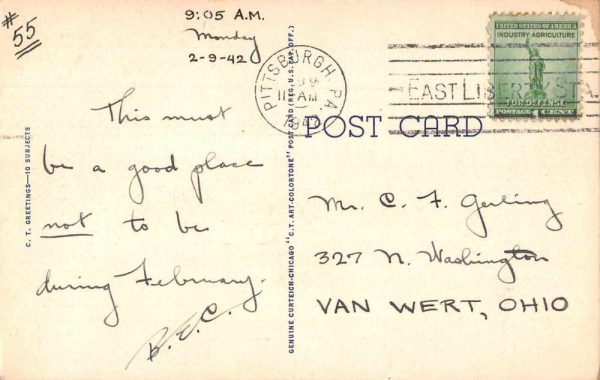 #55
9:05 A.M.
Monday
2-9-42
This must
be a good place
not to be
during February.
B.E.C.
C. T. GREETINGS—10 SUBJECTS
GENUINE CURTEICH-CHICAGO "C.T. ART-COLORTONE" POST CARD (REG. U.S. PAT. OFF.)
PITTSBURGH PA.
11 AM
1942
EAST LIBERTY STA.
UNITED STATES OF AMERICA
INDUSTRY AGRICULTURE
FOR DEFENSE
POSTAGE 1 CENT
POST CARD
Mr. C. F. Gerling
327 N. Washington
VAN WERT, OHIO